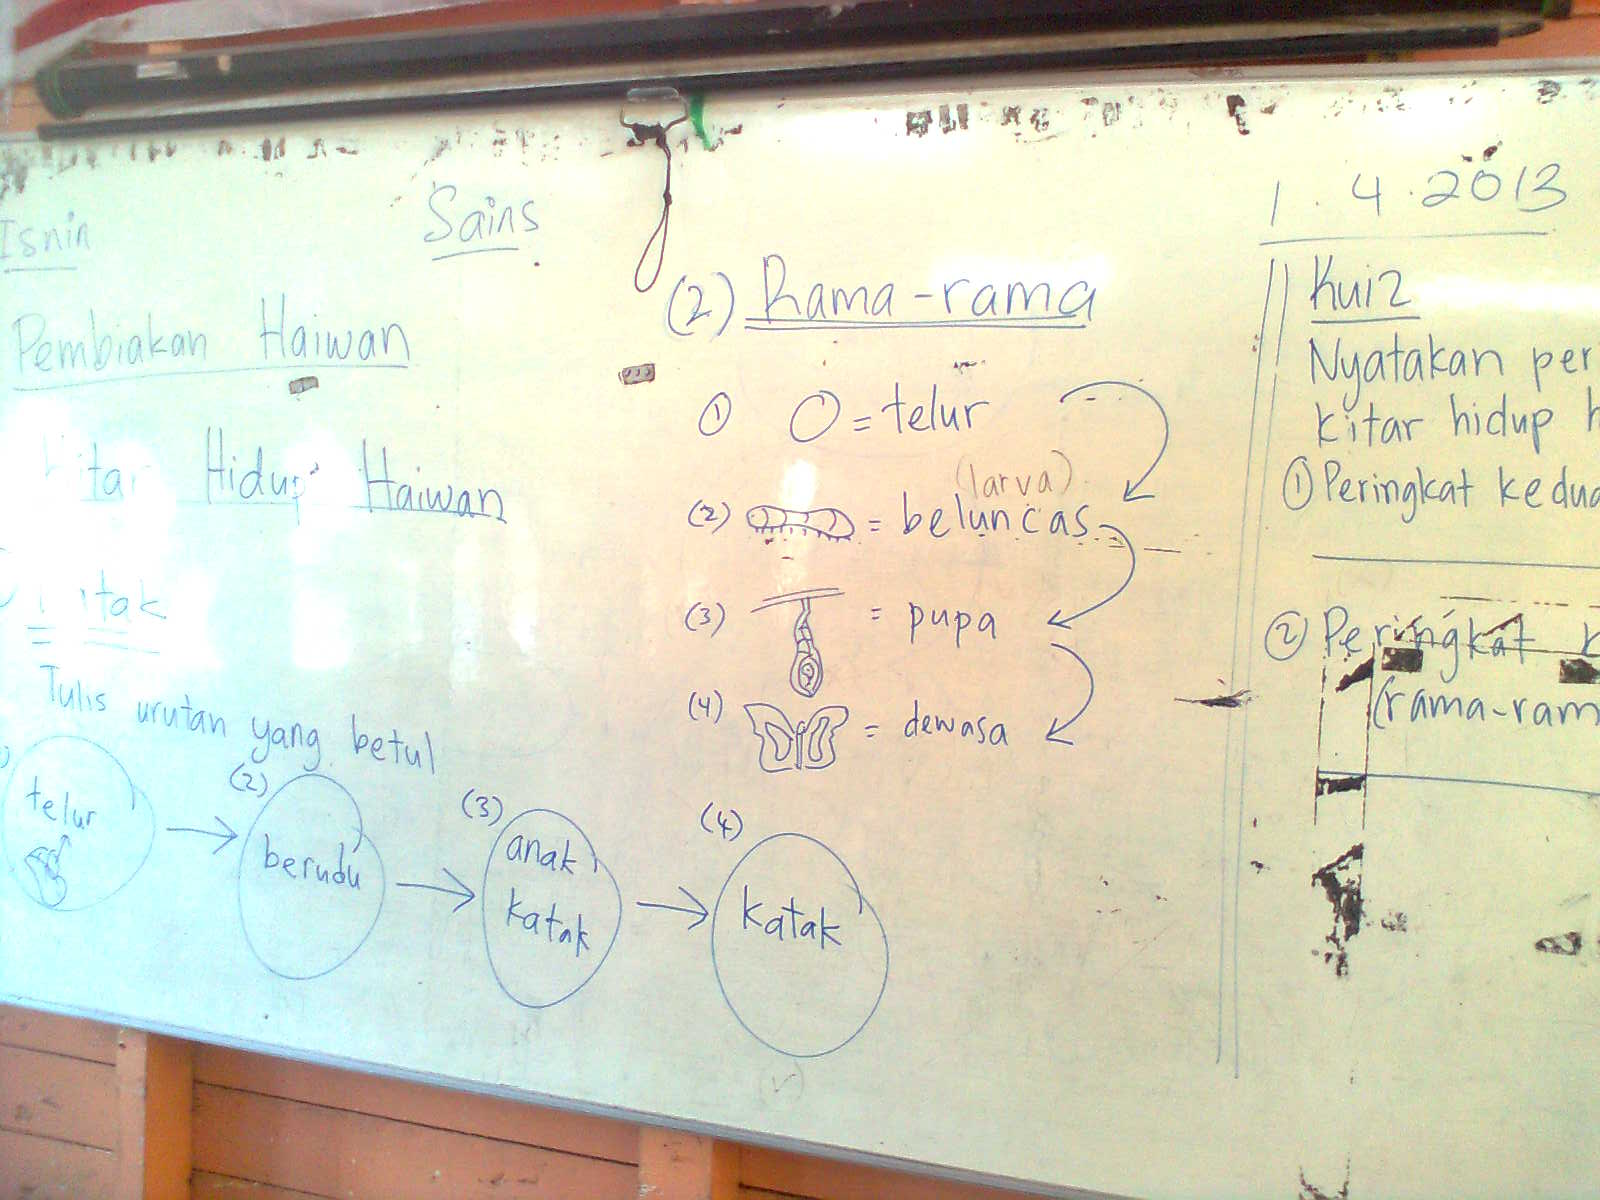 Isnin
Sains
1.4.2013
Pembiakan Haiwan
Hidup Haiwan
Tulis urutan yang betul
telur
(2)
berudu
(3)
anak
katak
(4)
katak
(2) Rama-rama
① = telur
(larva)
(2) = beluncas
(3) = pupa
(4) = dewasa
Kuiz
Nyatakan
kitar hidup
① Peringkat kedua
② Peringkat